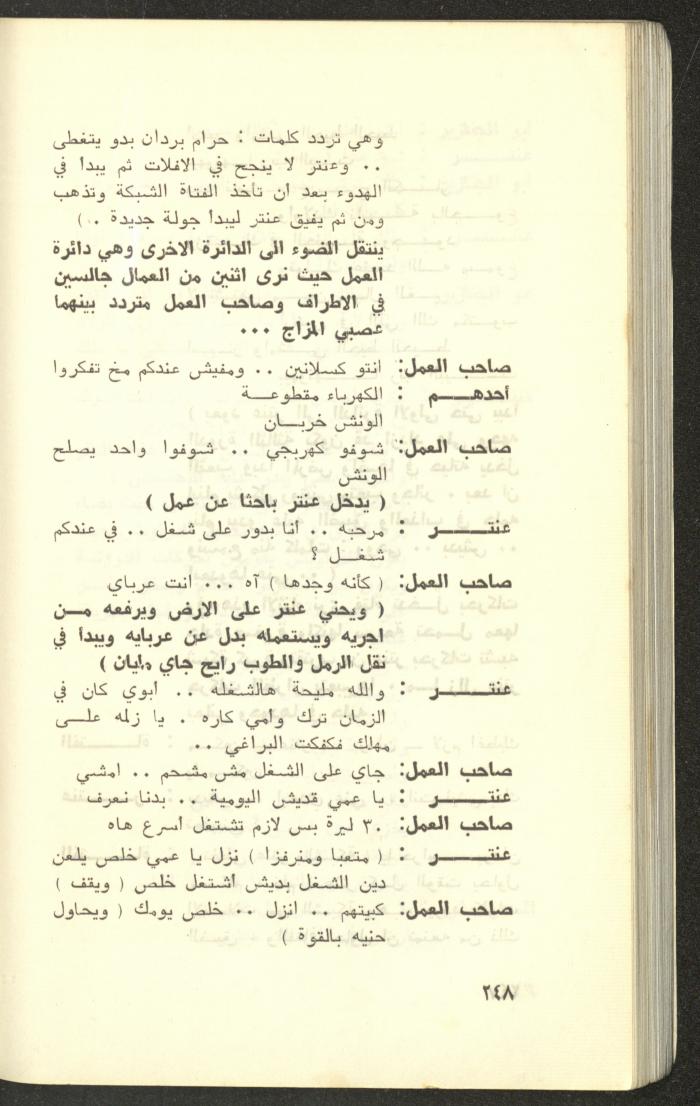 وهي تردد كلمات : حرام بردان بدو يتغطى
.. وعنتر لا ينجح في الافلات ثم يبدأ في
الهدوء بعد ان تأخذ الفتاة الشبكة وتذهب
ومن ثم يفيق عنتر ليبدأ جولة جديدة .. )
ينتقل الضوء الى الدائرة الاخرى وهي دائرة
العمل حيث نرى اثنين من العمال جالسين
في الاطراف وصاحب العمل متردد بينهما
عصبي المزاج ...
صاحب العمل: انتو كسلانين .. ومفيش عندكم مخ تفكروا
أحدهـــــم : الكهرباء مقطوعــــة
الونش خربـــان
صاحب العمل: شوفو كهربجي .. شوفوا واحد يصلح
الونش
( يدخل عنتر باحثا عن عمل )
عنتـــــــر : مرحبه .. انا بدور على شغل .. في عندكم
شغـــل ؟
صاحب العمل: ( كأنه وجدها ) آه ... انت عرباي
( ويحني عنتر على الارض ويرفعه مـــن
اجريه ويستعمله بدل عن عربايه ويبدأ في
نقل الرمل والطوب رايح جاي مايان )
عنتـــــــر : والله مليحة هالشغله .. ابوي كان في
الزمان ترك وامي كاره . يا زلمه علـــى
مهلك فكفكت البراغي ..
صاحب العمل: جاي على الشغل مش مشحم .. امشي
عنتـــــــر : يا عمي قديش اليومية .. بدنا نعرف
صاحب العمل: ٣٠ ليرة بس لازم تشتغل اسرع هاه
عنتـــــــر : ( متعبا ومنرفزا ) نزل يا عمي خلص يلعن
دين الشغل بديش اشتغل خلص ( ويقف )
صاحب العمل: كبيتهم .. انزل .. خلص يومك ( ويحاول
حنيه بالقوة )
٢٤٨